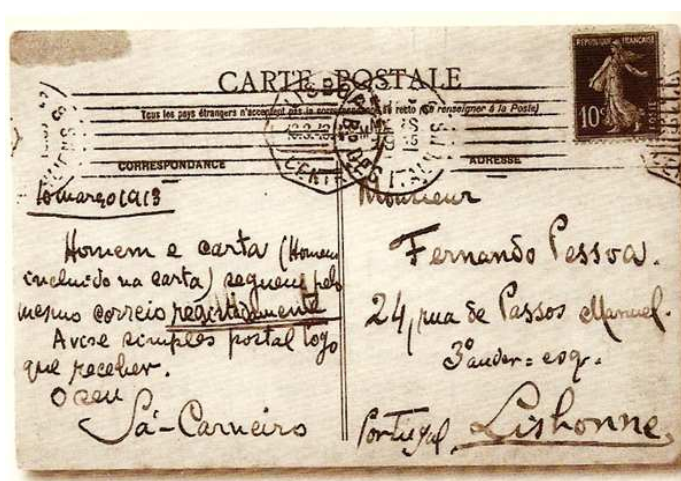 CARTE POSTALE
RÉPUBLIQUE FRANÇAISE
10c
POSTE
Tous les pays étrangers n'acceptent pas la correspondance au recto (se renseigner à la Poste)
CORRESPONDANCE
ADRESSE
10 março 1913
Homem e carta (Homem
incluido na carta) seguem pelo
mesmo correio registadamente
Avise simples postal logo
que receber.
O seu
Sá-Carneiro
Monsieur
Fernando Pessoa.
24, rua de Passos Manuel.
3º andar = esq.
Portugal, Lisbonne